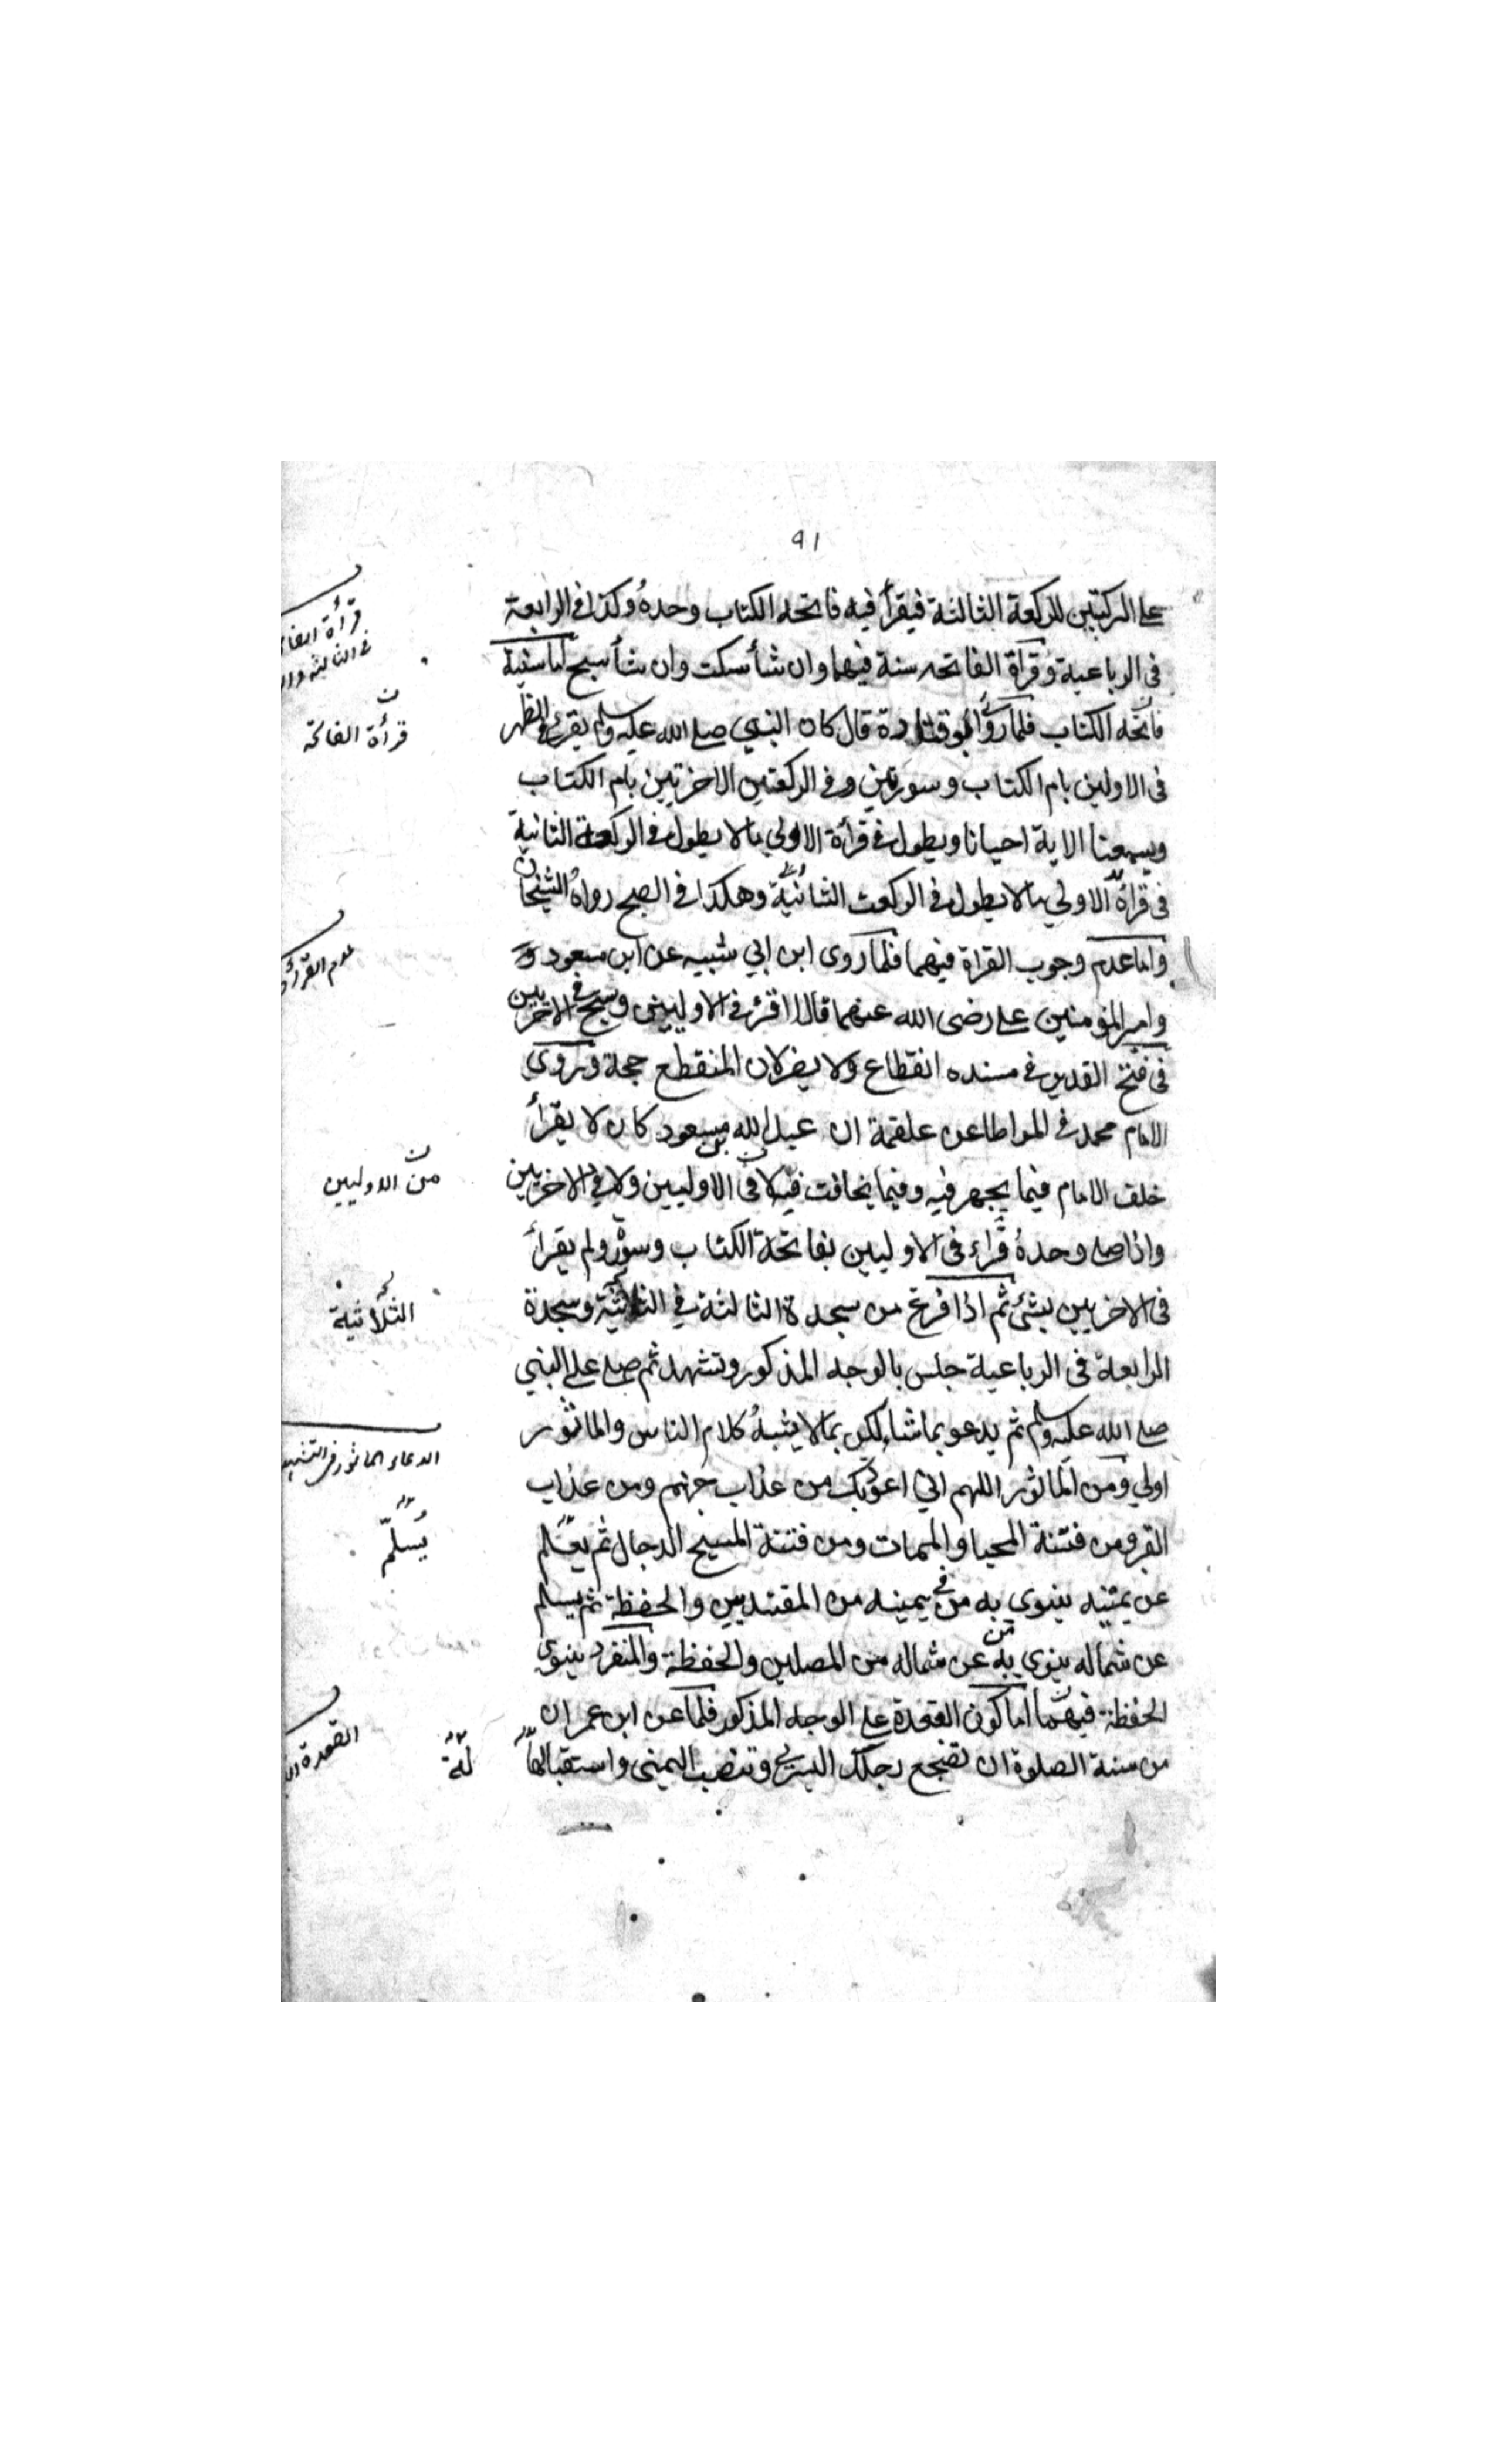 ٩١
على الركبتين للركعة الثالثة فيقرأ فيه فاتحه الكتاب وحدهُ وكذا في الرابعة
في الرباعية وقراة الفاتحه سنة فيهما وان شأ سكت وان شأ سبح اما سنية
فاتحه الكتاب فلما روي ابو قتادة قال كان النبي صلى الله عليه وسلم يقرئ في الظهر
في الاولين بام الكتاب وسورتين وفي الركعتين الاخرتين بام الكتاب
ويسمعنا الاية احيانا ويطول في قرأة الاولي مالا يطول في الركعة الثانية
في قراة الاولي مالا يطول في الركعت الثانية وهكذا في الصبح رواهُ الشيخان
واما عدم وجوب القراة فيهما فلما روى ابن ابي شيبه عن ابن مسعود
وامير المؤمنين على رضى الله عنهما قالا اقرئ في الاوليين وسبح في الاخريين
في فتح القدير في مسنده انقطاع ولا يضر لان المنقطع حجة وروي
الامام محمد في المواطا عن علقمة ان عبد الله بن مسعود كان لا يقرأ
خلف الامام فيما يجهر فيه وفيما يخافت فيه لا في الاوليين ولا في الاخريين
واذا صلى وحدهُ قراء في الاوليين بفاتحة الكتاب وسورة ولم يقرأ
في الاخريين بشئ ثم اذا فرغ من سجدة الثالثة في الثلاثية وسجدة
الرابعة في الرباعية جلس بالوجه المذكور وتشهد ثم صلى على النبي
صلى الله عليه وسلم ثم يدعو بما شاء لكن بما لا يشبهُ كلام الناس والماثور
اولي ومن الماثور اللهم اني اعوذبك من عذاب جهنم ومن عذاب
القبر ومن فتنة المحيا والممات ومن فتنة المسيح الدجال ثم يسلم
عن يمينه ينوي به من في يمينه من المقتديين والحفظة ثم يسلم
عن شماله ينوي به من عن شماله من المصلين والحفظة والمنفرد ينوي
الحفظة فيهما اما كون القعدة على الوجه المذكور فلما عن ابن عمر ان
من سنة الصلوة ان تضجع رجلك اليسرى وتنصب اليمنى واستقبالها
قرأة الفاتحة
عدم القرأة
من الاوليين
الثلاثية
الدعاء الماثور في التشهد
يُسلّم
القعدة